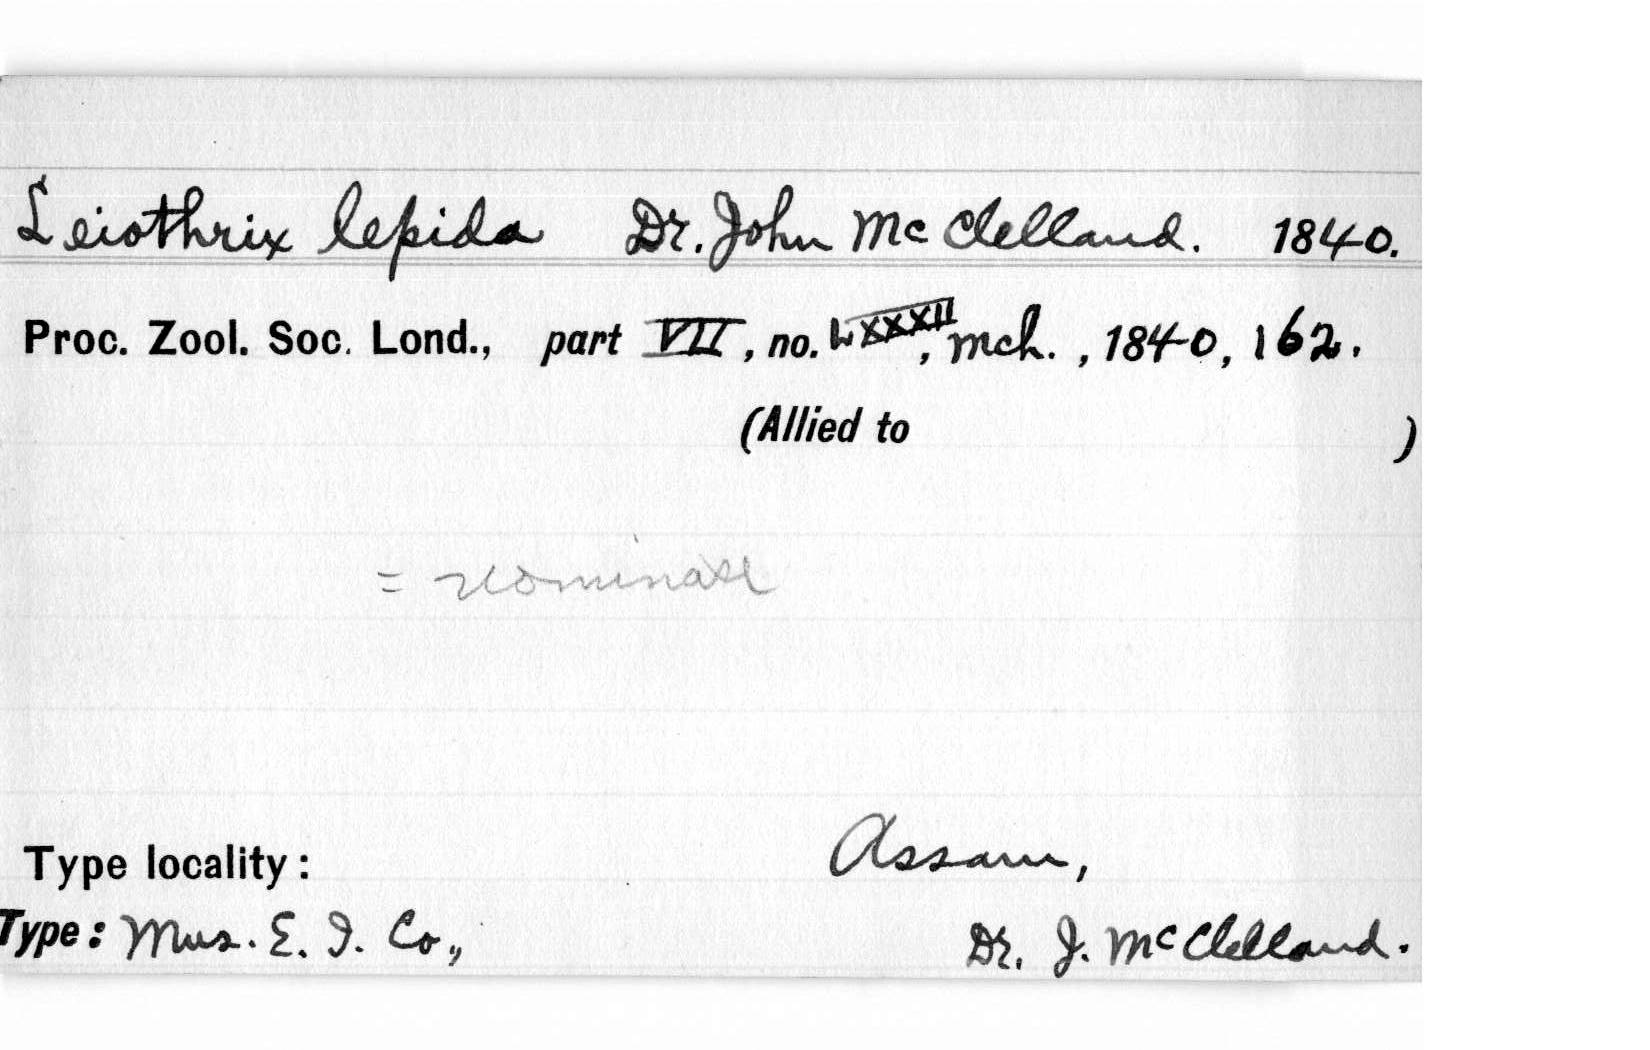 Leiothrix lepida Dr. John McClelland. 1840.
Proc. Zool. Soc. Lond., part VII, no. LXXXII, mch., 1840, 162.
(Allied to )
= nominate
Type locality: Assam,
Type: Mus. E. I. Co., Dr. J. McClelland.